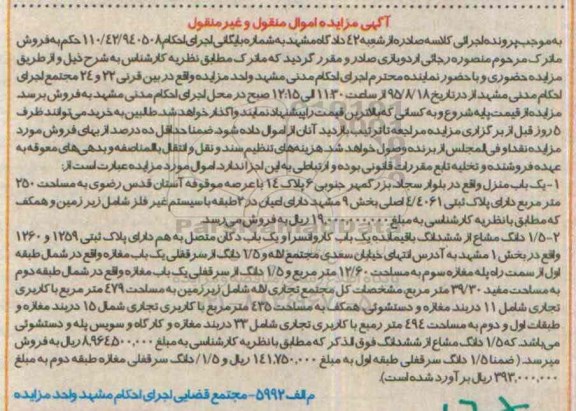 آگهی مزایده اموال منقول و غیر منقول
به موجب پرونده اجرائی کلاسه صادره از شعبه ۴۲ دادگاه مشهد به شماره بایگانی اجرای احکام ۱۱۰/۴۲/۹۴۰۵۰۸ حکم به فروش
ماترک مرحوم منصوره رجائی اردوبازی صادر و مقرر گردید که ماترک مطابق نظریه کارشناس به شرح ذیل و از طریق
مزایده حضوری و با حضور نماینده محترم اجرای احکام مدنی مشهد واحد مزایده واقع در بین قرنی ۲۲ و ۲۴ مجتمع اجرای
احکام مدنی مشهد از در تاریخ ۹۵/۸/۱۸ از ساعت ۱۱:۳۰ الی ۱۲:۱۵ صبح در محل اجرای احکام مدنی مشهد به فروش برسد.
مزایده از قیمت پایه شروع و به کسانی که بالاترین قیمت را پیشنهاد نمایند واگذار خواهد شد. طالبین به خرید می توانند ظرف
۵ روز قبل از برگزاری مزایده مراجعه تا ترتیب بازدید آنان از اموال داده شود. ضمنا حداقل ده درصد از بهای فروش مورد
مزایده نقدا و فی المجلس از برنده وصول خواهد شد. هزینه های تنظیم سند و نقل و انتقال بالمناصفه و بدهی های معوقه به
عهده فروشنده و تخلیه تابع مقررات قانونی بوده و ارتباطی به این اجرا ندارد. اموال مورد مزایده عبارت است از:
۱- یک باب منزل واقع در بلوار سجاد، بزرگمهر جنوبی ۶ پلاک ۱۴ با عرصه موقوفه آستان قدس رضوی به مساحت ۲۵۰
متر مربع دارای پلاک ثبتی ۴/۴۰۶۱ اصلی بخش ۹ مشهد دارای اعیان در ۲ طبقه با سیستم غیر فلز شامل زیر زمین و همکف
که مطابق با نظریه کارشناسی به مبلغ ۱۹,۰۰۰,۰۰۰,۰۰۰ ریال به فروش می رسد.
۲- ۱/۵ دانگ مشاع از ششدانگ باقیمانده یک باب کاروانسرا و یک باب دکان متصل به هم دارای پلاک ثبتی ۱۲۵۹ و ۱۲۶۰
واقع در بخش ۱ مشهد به آدرس انتهای خیابان سعدی مجتمع لاله و ۱/۵ دانگ از سرقفلی یک باب مغازه واقع در شمال طبقه
اول از سمت راه پله مغازه سوم به مساحت ۱۲/۶۰ متر مربع و ۱/۵ دانگ از سرقفلی یک باب مغازه واقع در شمال طبقه دوم
به مساحت مفید ۳۹/۳۰ متر مربع. مشخصات کل مجتمع تجاری لاله شامل زیرزمین به مساحت ۴۷۹ متر مربع با کاربری
تجاری شامل ۱۱ دربند مغازه و دستشوئی، همکف به مساحت ۴۳۵ متر مربع با کاربری تجاری شمال ۱۵ دربند مغازه و
طبقات اول و دوم به مساحت ۴۹۴ متر رمیع با کاربری تجاری شامل ۳۳ دربند مغازه و کارگاه و سرویس پله و دستشوئی
می باشد. که ۱/۵ دانگ مشاع از ششدانگ فوق الذکر که مطابق با نظریه کارشناسی به مبلغ ۸,۹۶۴,۵۰۰,۰۰۰ ریال به فروش
میرسد. (ضمنا ۱/۵ دانگ سرقفلی طبقه اول به مبلغ ۱۴۱,۷۵۰,۰۰۰ ریال و ۱/۵ دانگ سرقفلی مغازه طبقه دوم به مبلغ
۳۹۳,۰۰۰,۰۰۰ ریال بر آورد شده است).
م الف ۵۹۹۲- مجتمع قضایی اجرای احکام مشهد واحد مزایده